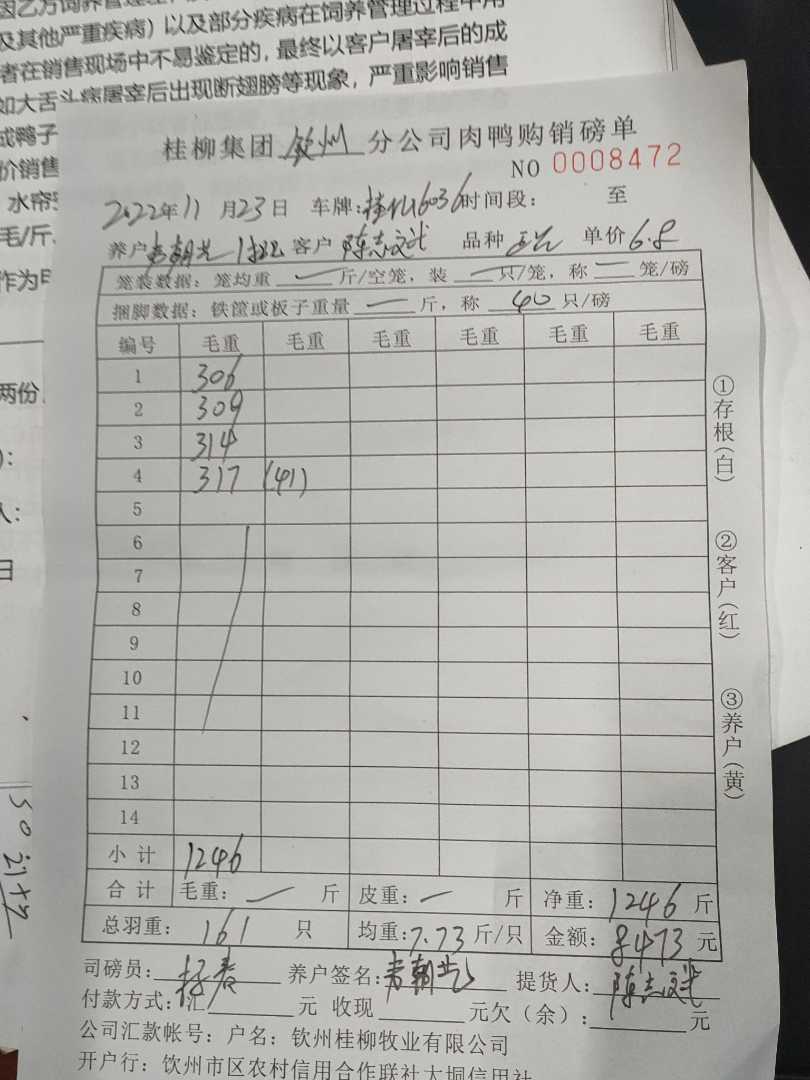 因乙方饲养管理
及其他严重疾病）以及部分疾病在饲养管理过程中用
者在销售现场中不易鉴定的，最终以客户屠宰后的成
如大舌头病屠宰后出现断翅膀等现象，严重影响销售
成鸭子
价销售
水帘
毛/斤
作为
两份
桂柳集团钦州分公司肉鸭购销磅单
NO 0008472
2022年11月23日 车牌: 6036 时间段: 至
养户 韦朝 客户 陈志 品种 单价 6.8
笼装数据：笼均重 一 斤/空笼，装 一 只/笼，称 一 笼/磅
捆脚数据：铁筐或板子重量 一 斤，称 40 只/磅
编号 毛重 毛重 毛重 毛重 毛重 毛重
1 306
2 309
3 314
4 317 (41)
5
6
7
8
9
10
11
12
13
14
小计 1246
合计 毛重：一 斤 皮重：一 斤 净重：1246 斤
总羽重：161 只 均重：7.73 斤/只 金额：8473 元
司磅员： 养户签名：韦朝 提货人：陈志
付款方式：汇 元 收现 元欠（余）： 元
公司汇款帐号：户名：钦州桂柳牧业有限公司
开户行：钦州市区农村信用合作联社大垌信用社
①存根（白）
②客户（红）
③养户（黄）